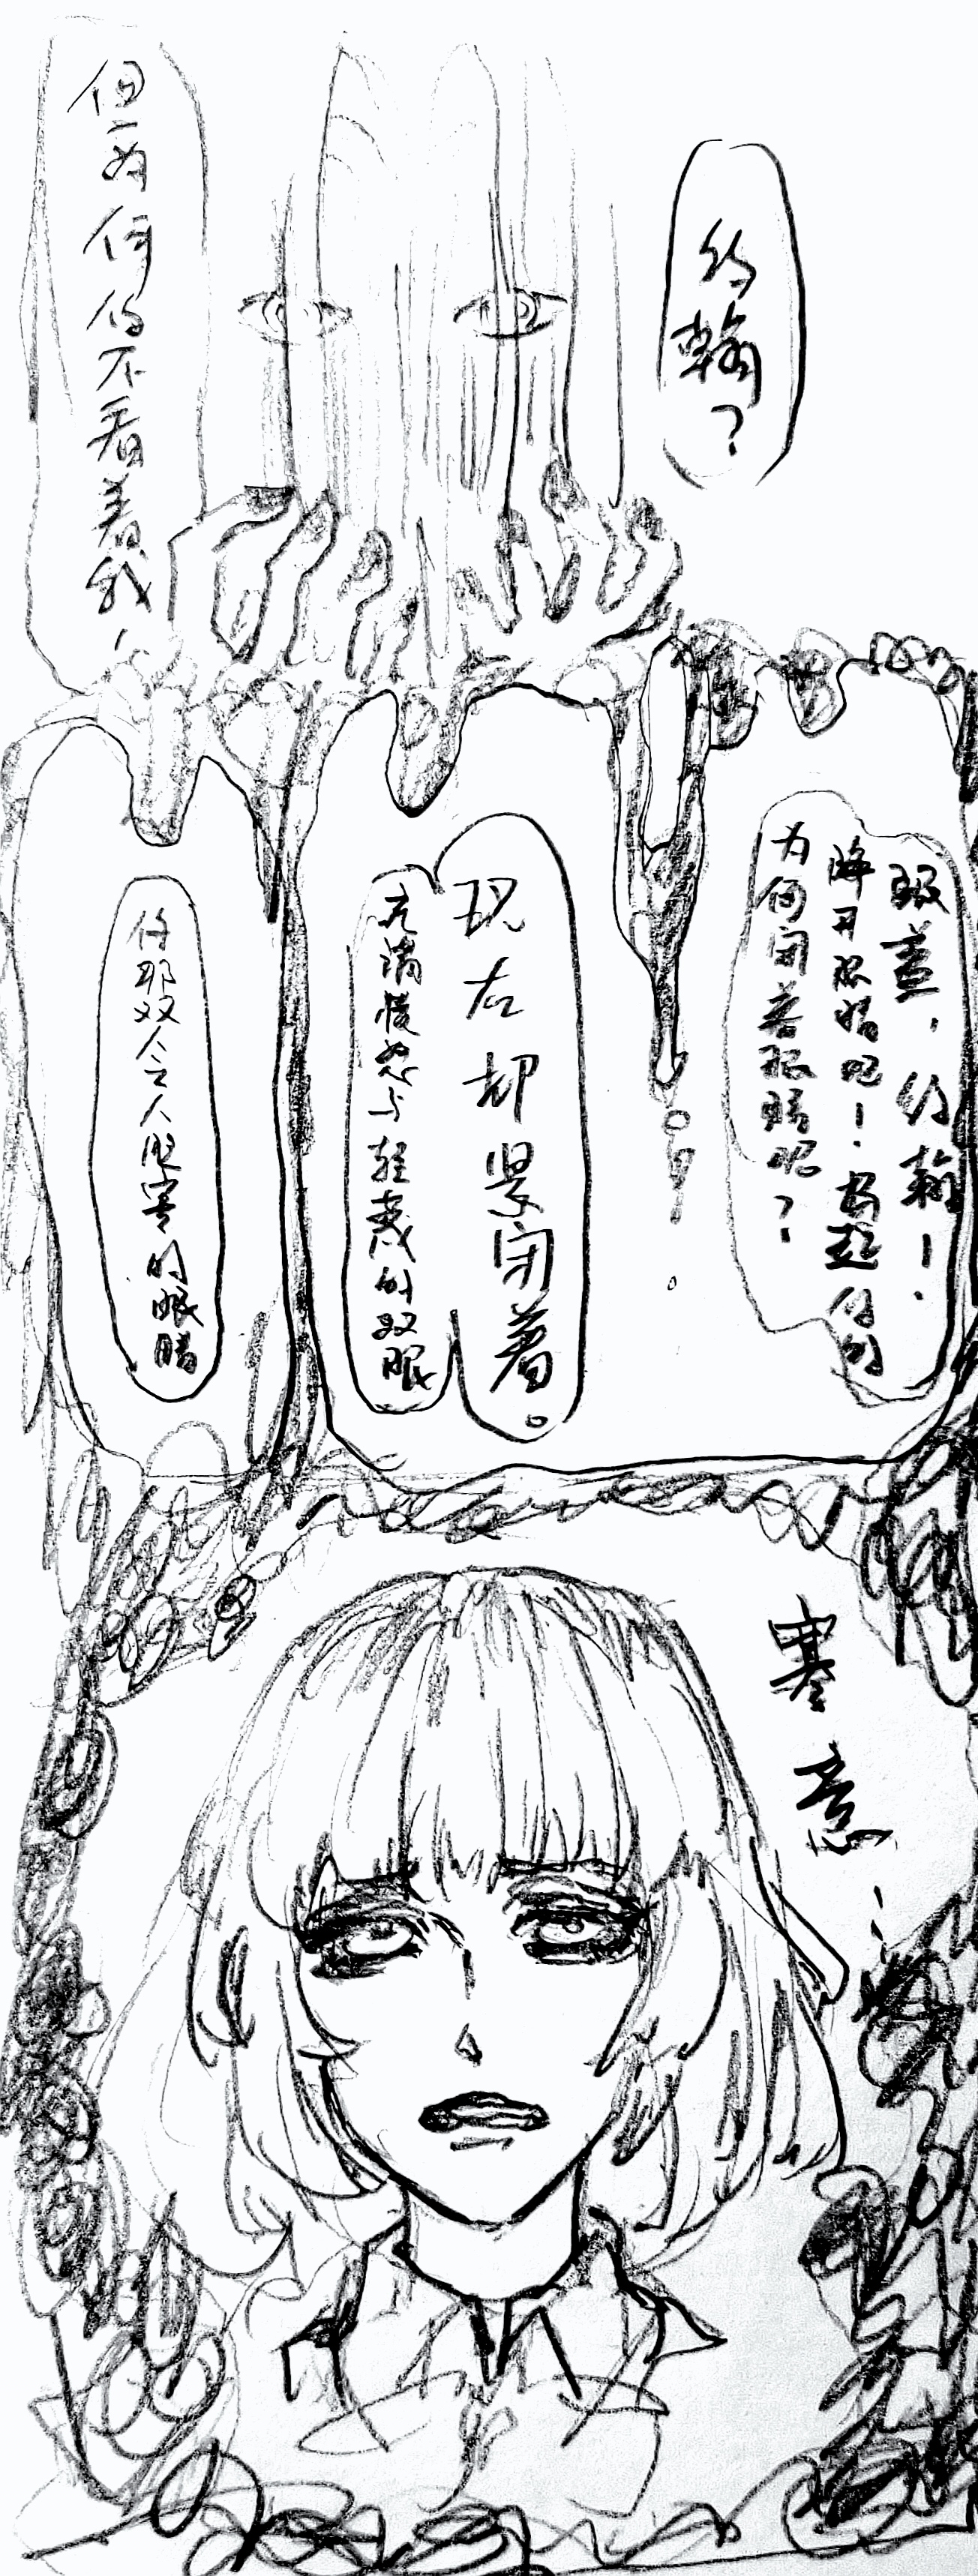 但为何你不看着我，
约翰？
你那双令人胆寒的眼睛
充满愤怒与轻蔑的双眼
现在却紧闭着。
为何闭着眼睛呢？
睁开眼睛吧！抬起你的
眼盖，约翰！
寒意…